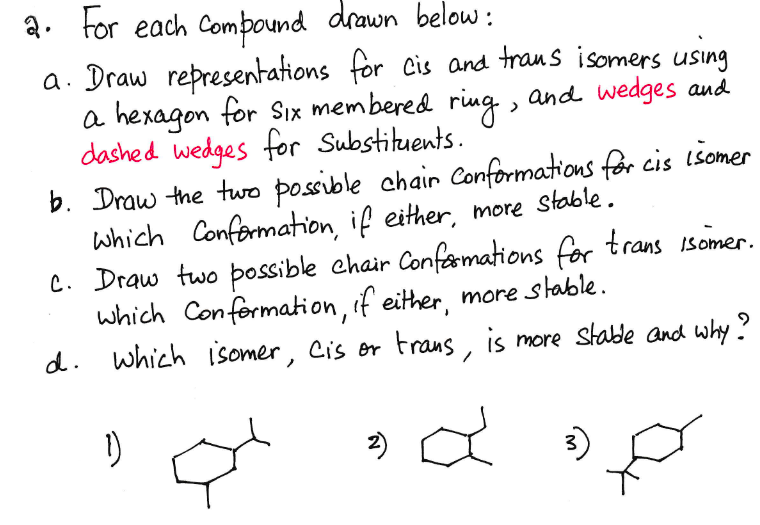 2. For each Compound drawn below:
a. Draw representations for cis and trans isomers using
a hexagon for Six membered ring, and wedges and
dashed wedges for Substituents.
b. Draw the two possible chair Conformations for cis isomer
which Conformation, if either, more stable.
c. Draw two possible chair Conformations for trans isomer.
which Conformation, if either, more stable.
d. which isomer, Cis or trans, is more stable and why?
1) 2) 3)